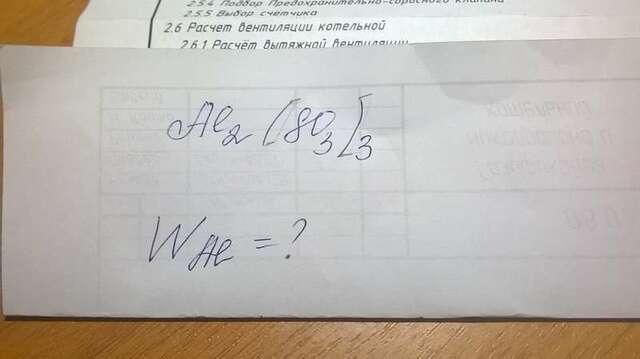 2.5.4 Подбор Предохранительно-сбросного клапана
2.5.5 Выбор счетчика
2.6 Расчет вентиляции котельной
2.6.1 Расчёт вытяжной вентиляции
Al2 (SO3)3
WAl = ?